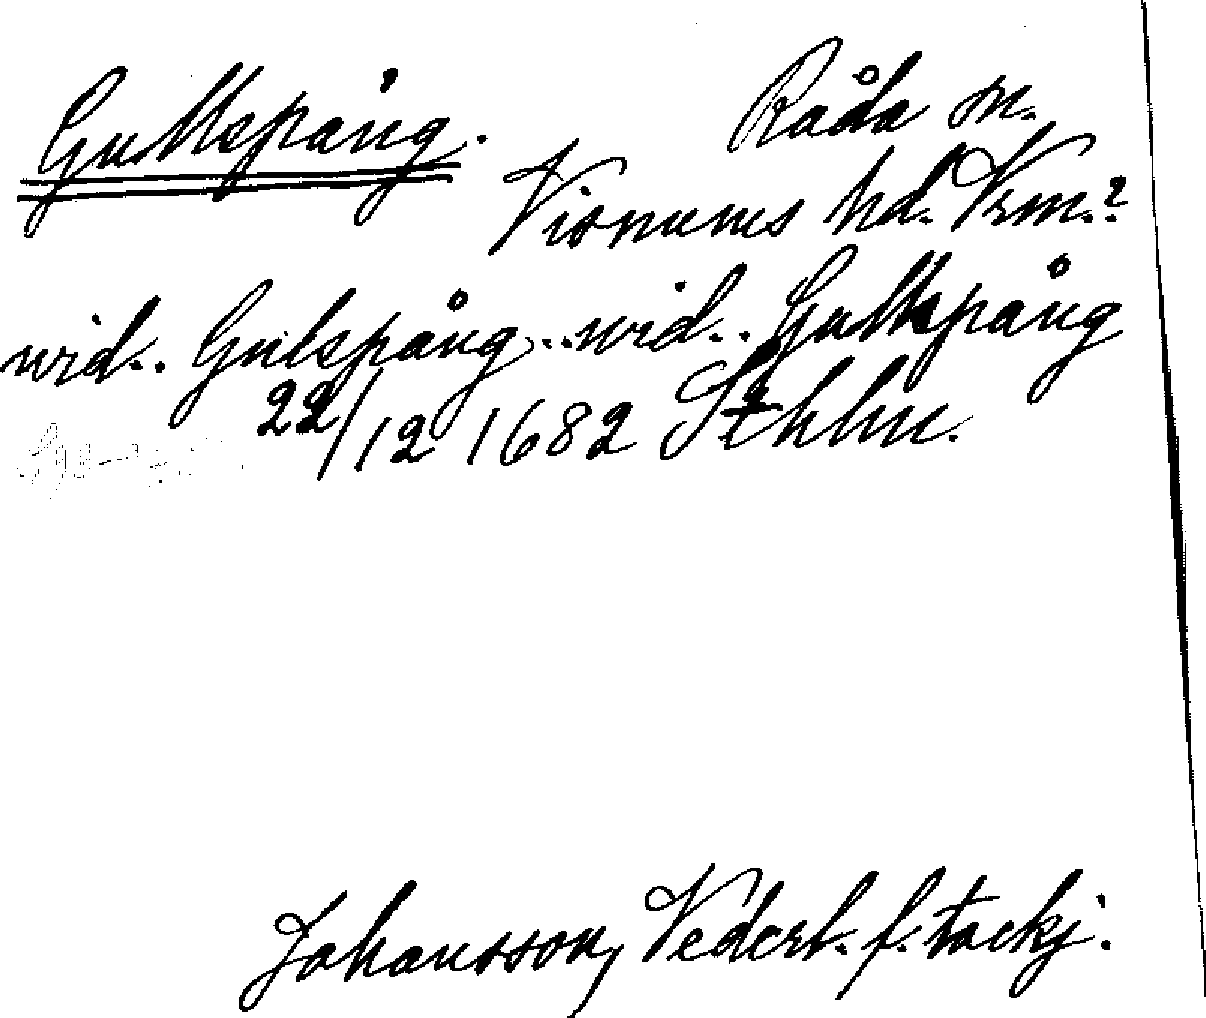 Gullspång. Råda sn.
Visnums hd. Vrm.?
wid.. Gulspång... wid.. Gullspång
22/12 1682 Sthlm.
Johansson, Vederl. f. tackj.